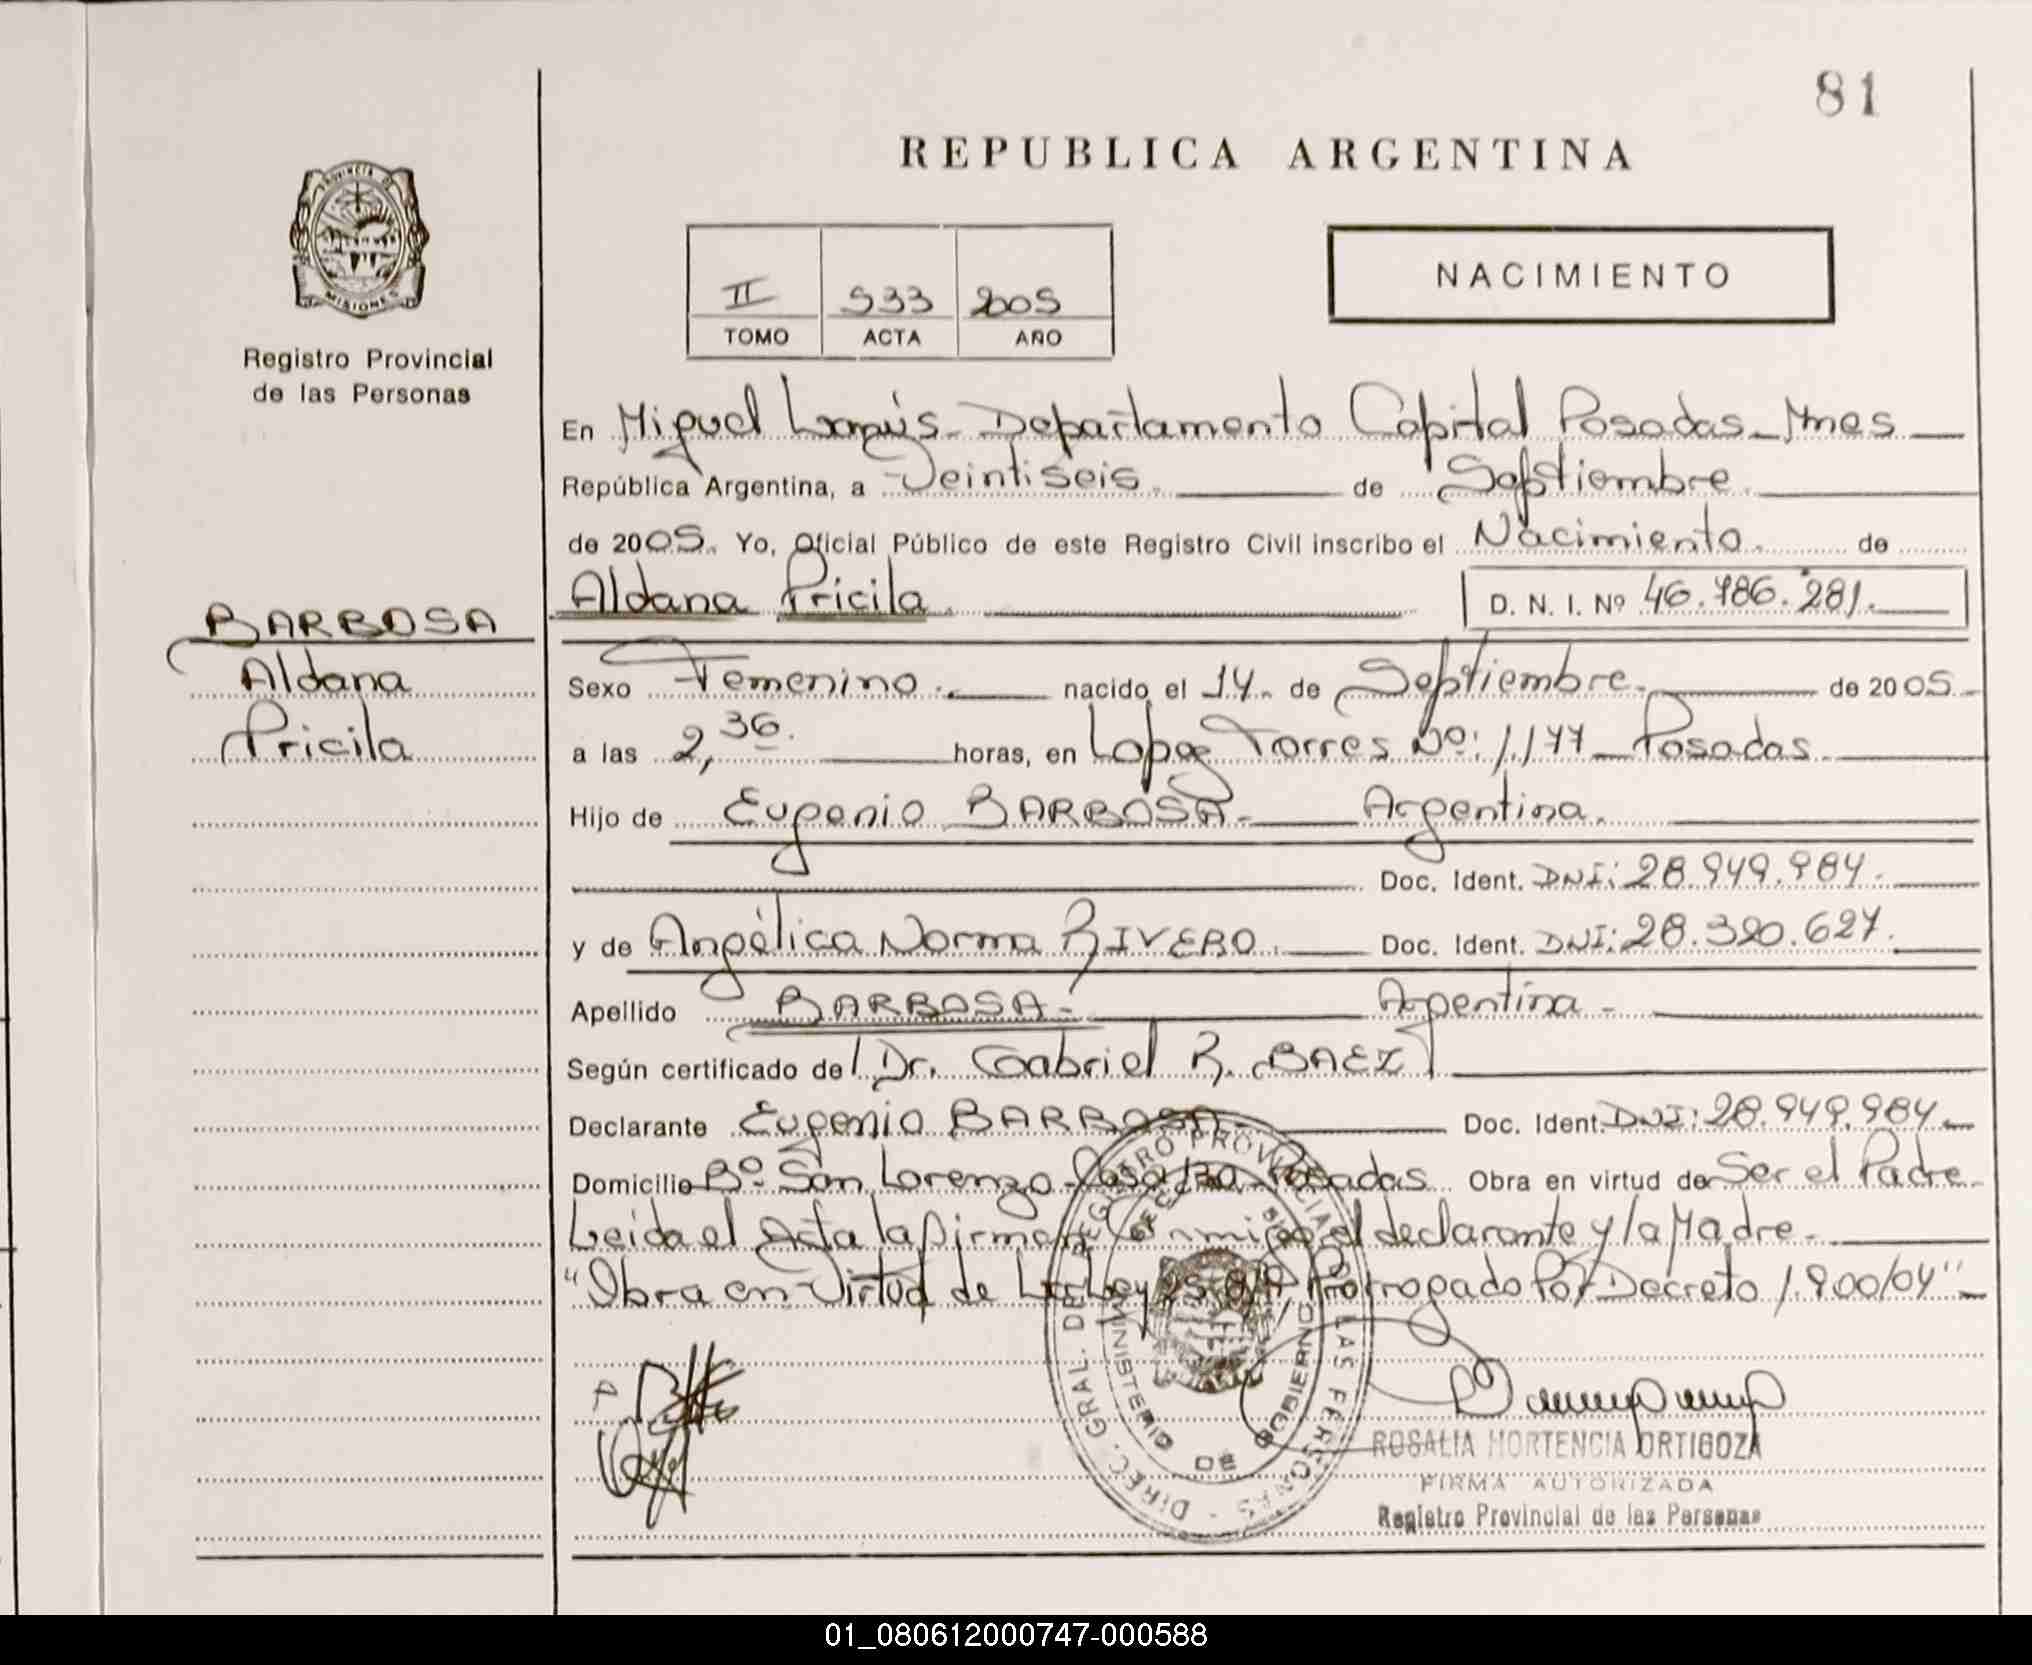 81
REPUBLICA ARGENTINA
PROVINCIA DE
MISIONES
Registro Provincial
de las Personas
II 533 2005
TOMO ACTA AÑO
NACIMIENTO
En Miguel Lanús - Departamento Capital Posadas - Mnes
República Argentina, a Veintiseis. de Septiembre.
de 2005. Yo, Oficial Público de este Registro Civil inscribo el Nacimiento. de
Aldana Pricila. D. N. I. Nº 46.786.281.
BARBOSA
Aldana
Pricila
Sexo Femenino. nacido el 14. de Septiembre. de 2005.
a las 2,36. horas, en Lopez Torres Nº: 1.177 - Posadas.
Hijo de Eugenio BARBOSA - Argentina.
Doc. Ident. DNI: 28.949.984.
y de Angélica Norma RIVERO. Doc. Ident. DNI: 28.320.627.
Apellido BARBOSA - Argentina -
Según certificado de Dr. Gabriel R. BAEZ
Declarante Eugenio BARBOSA - Doc. Ident. DNI: 28.949.984.
Domicilio Bº San Lorenzo - Casa Posadas. Obra en virtud de Ser el Padre.
Leida el Acta la firman conmigo el declarante y la Madre.
"Obra en Virtud de La Ley Prorrogado Por Decreto 1.900/04"
DIREC. GRAL. DEL REGISTRO PROVINCIAL DE LAS PERSONAS
MINISTERIO DE GOBIERNO
ROSALIA HORTENCIA ORTIGOZA
FIRMA AUTORIZADA
Registro Provincial de las Personas
01_080612000747-000588